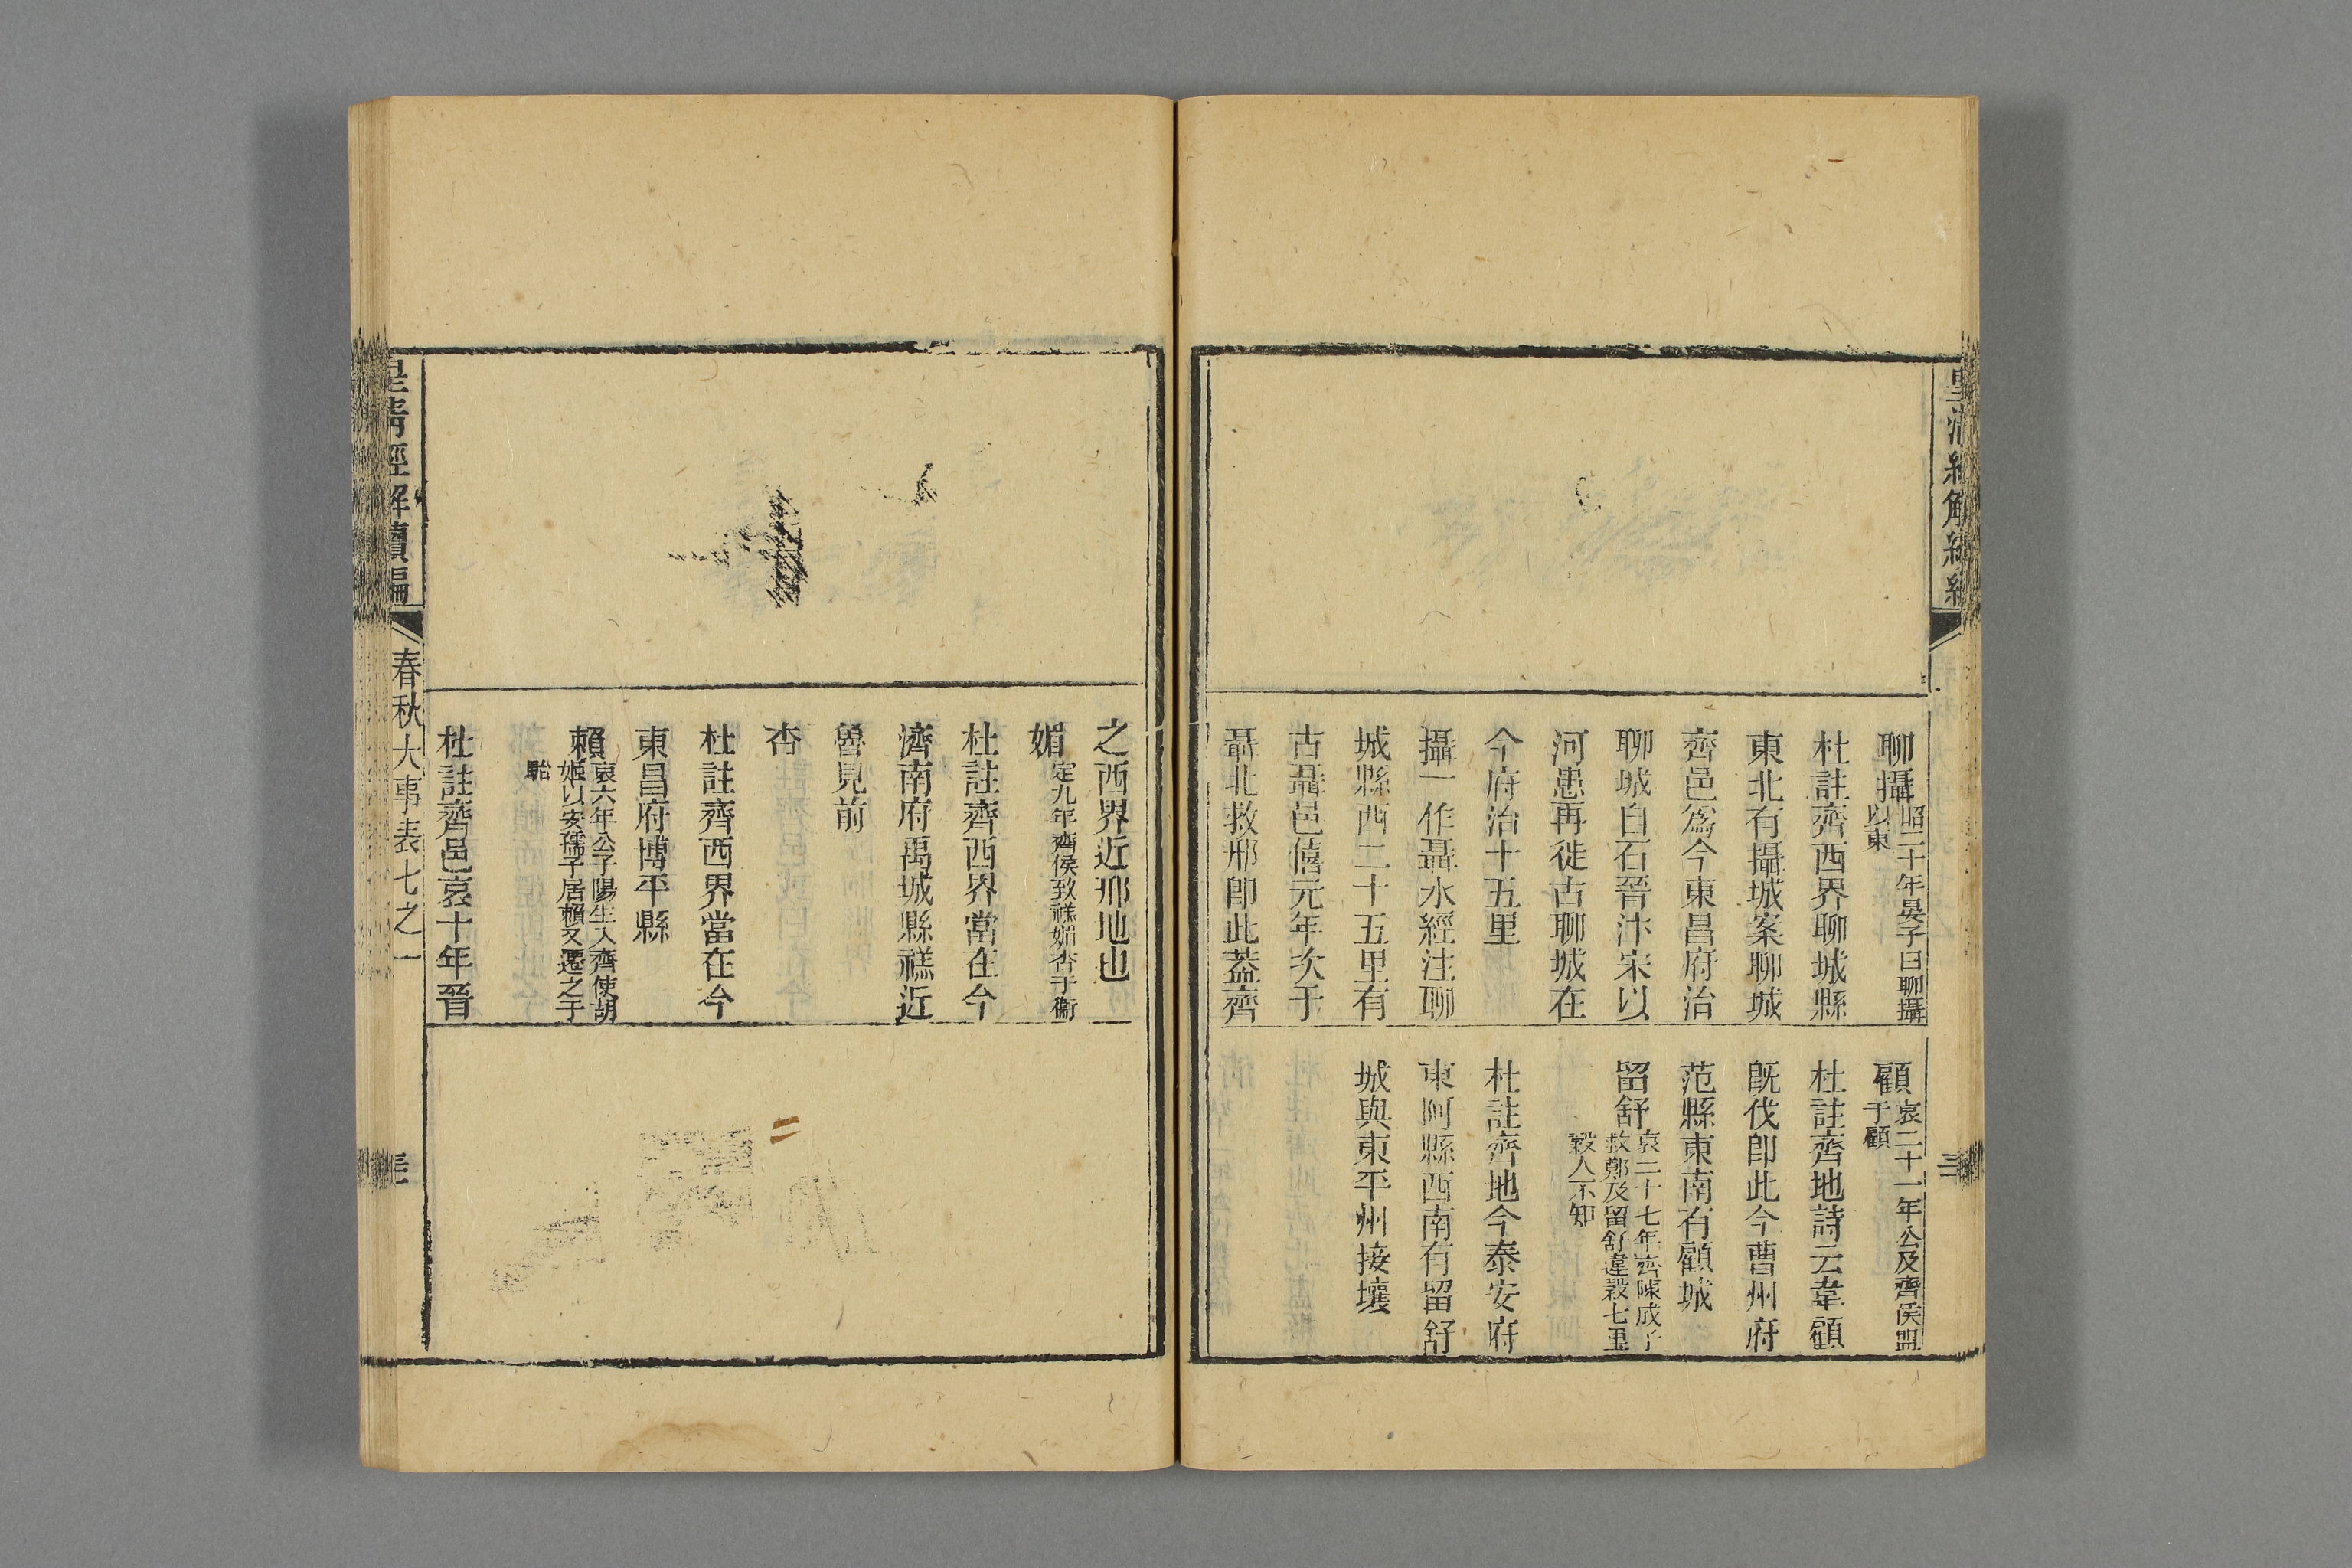 聊攝昭二十年晏子曰聊攝
以東
杜註齊西界聊城縣
東北有攝城案聊城
齊邑爲今東昌府治
聊城自石晉汴宋以
河患再徙古聊城在
今府治十五里
攝一作聶水經注聊
城縣西二十五里有
古聶邑僖元年次于
聶北救邢卽此葢齊
顧哀二十一年公及齊侯盟
于顧
杜註齊地詩云韋顧
旣伐卽此今曹州府
范縣東南有顧城
留舒哀二十七年齊陳成子
救鄭及留舒違穀七里
穀人不知
杜註齊地今泰安府
東阿縣西南有留舒
城與東平州接壤
之西界近邢地也
媚定九年齊侯致禚媚杏于衞
杜註齊西界當在今
濟南府禹城縣禚近
魯見前
杏
杜註齊西界當在今
東昌府博平縣
賴哀六年公子陽生入齊使胡
姬以安孺子居賴又遷之于
駘
杜註齊邑哀十年晉
皇清經解續編
春秋大事表七之一